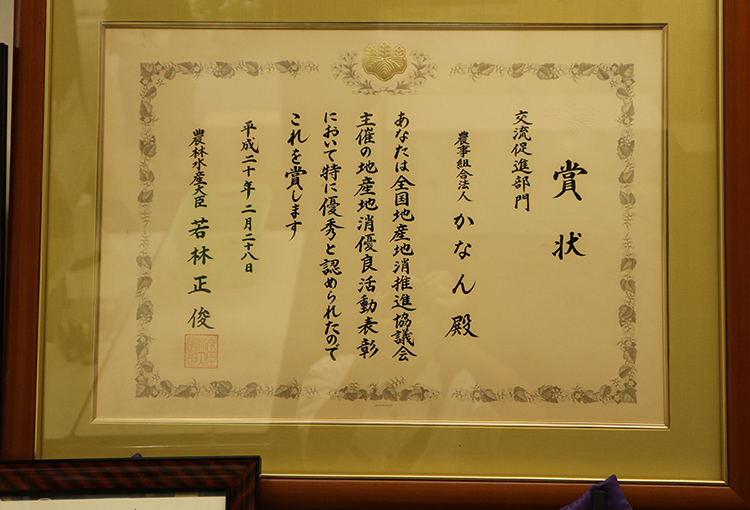 賞状
交流促進部門
農事組合法人 かなん殿
あなたは全国地産地消推進協議会
主催の地産地消優良活動表彰
において特に優秀と認められたので
これを賞します
平成二十年二月二十八日
農林水産大臣 若林正俊